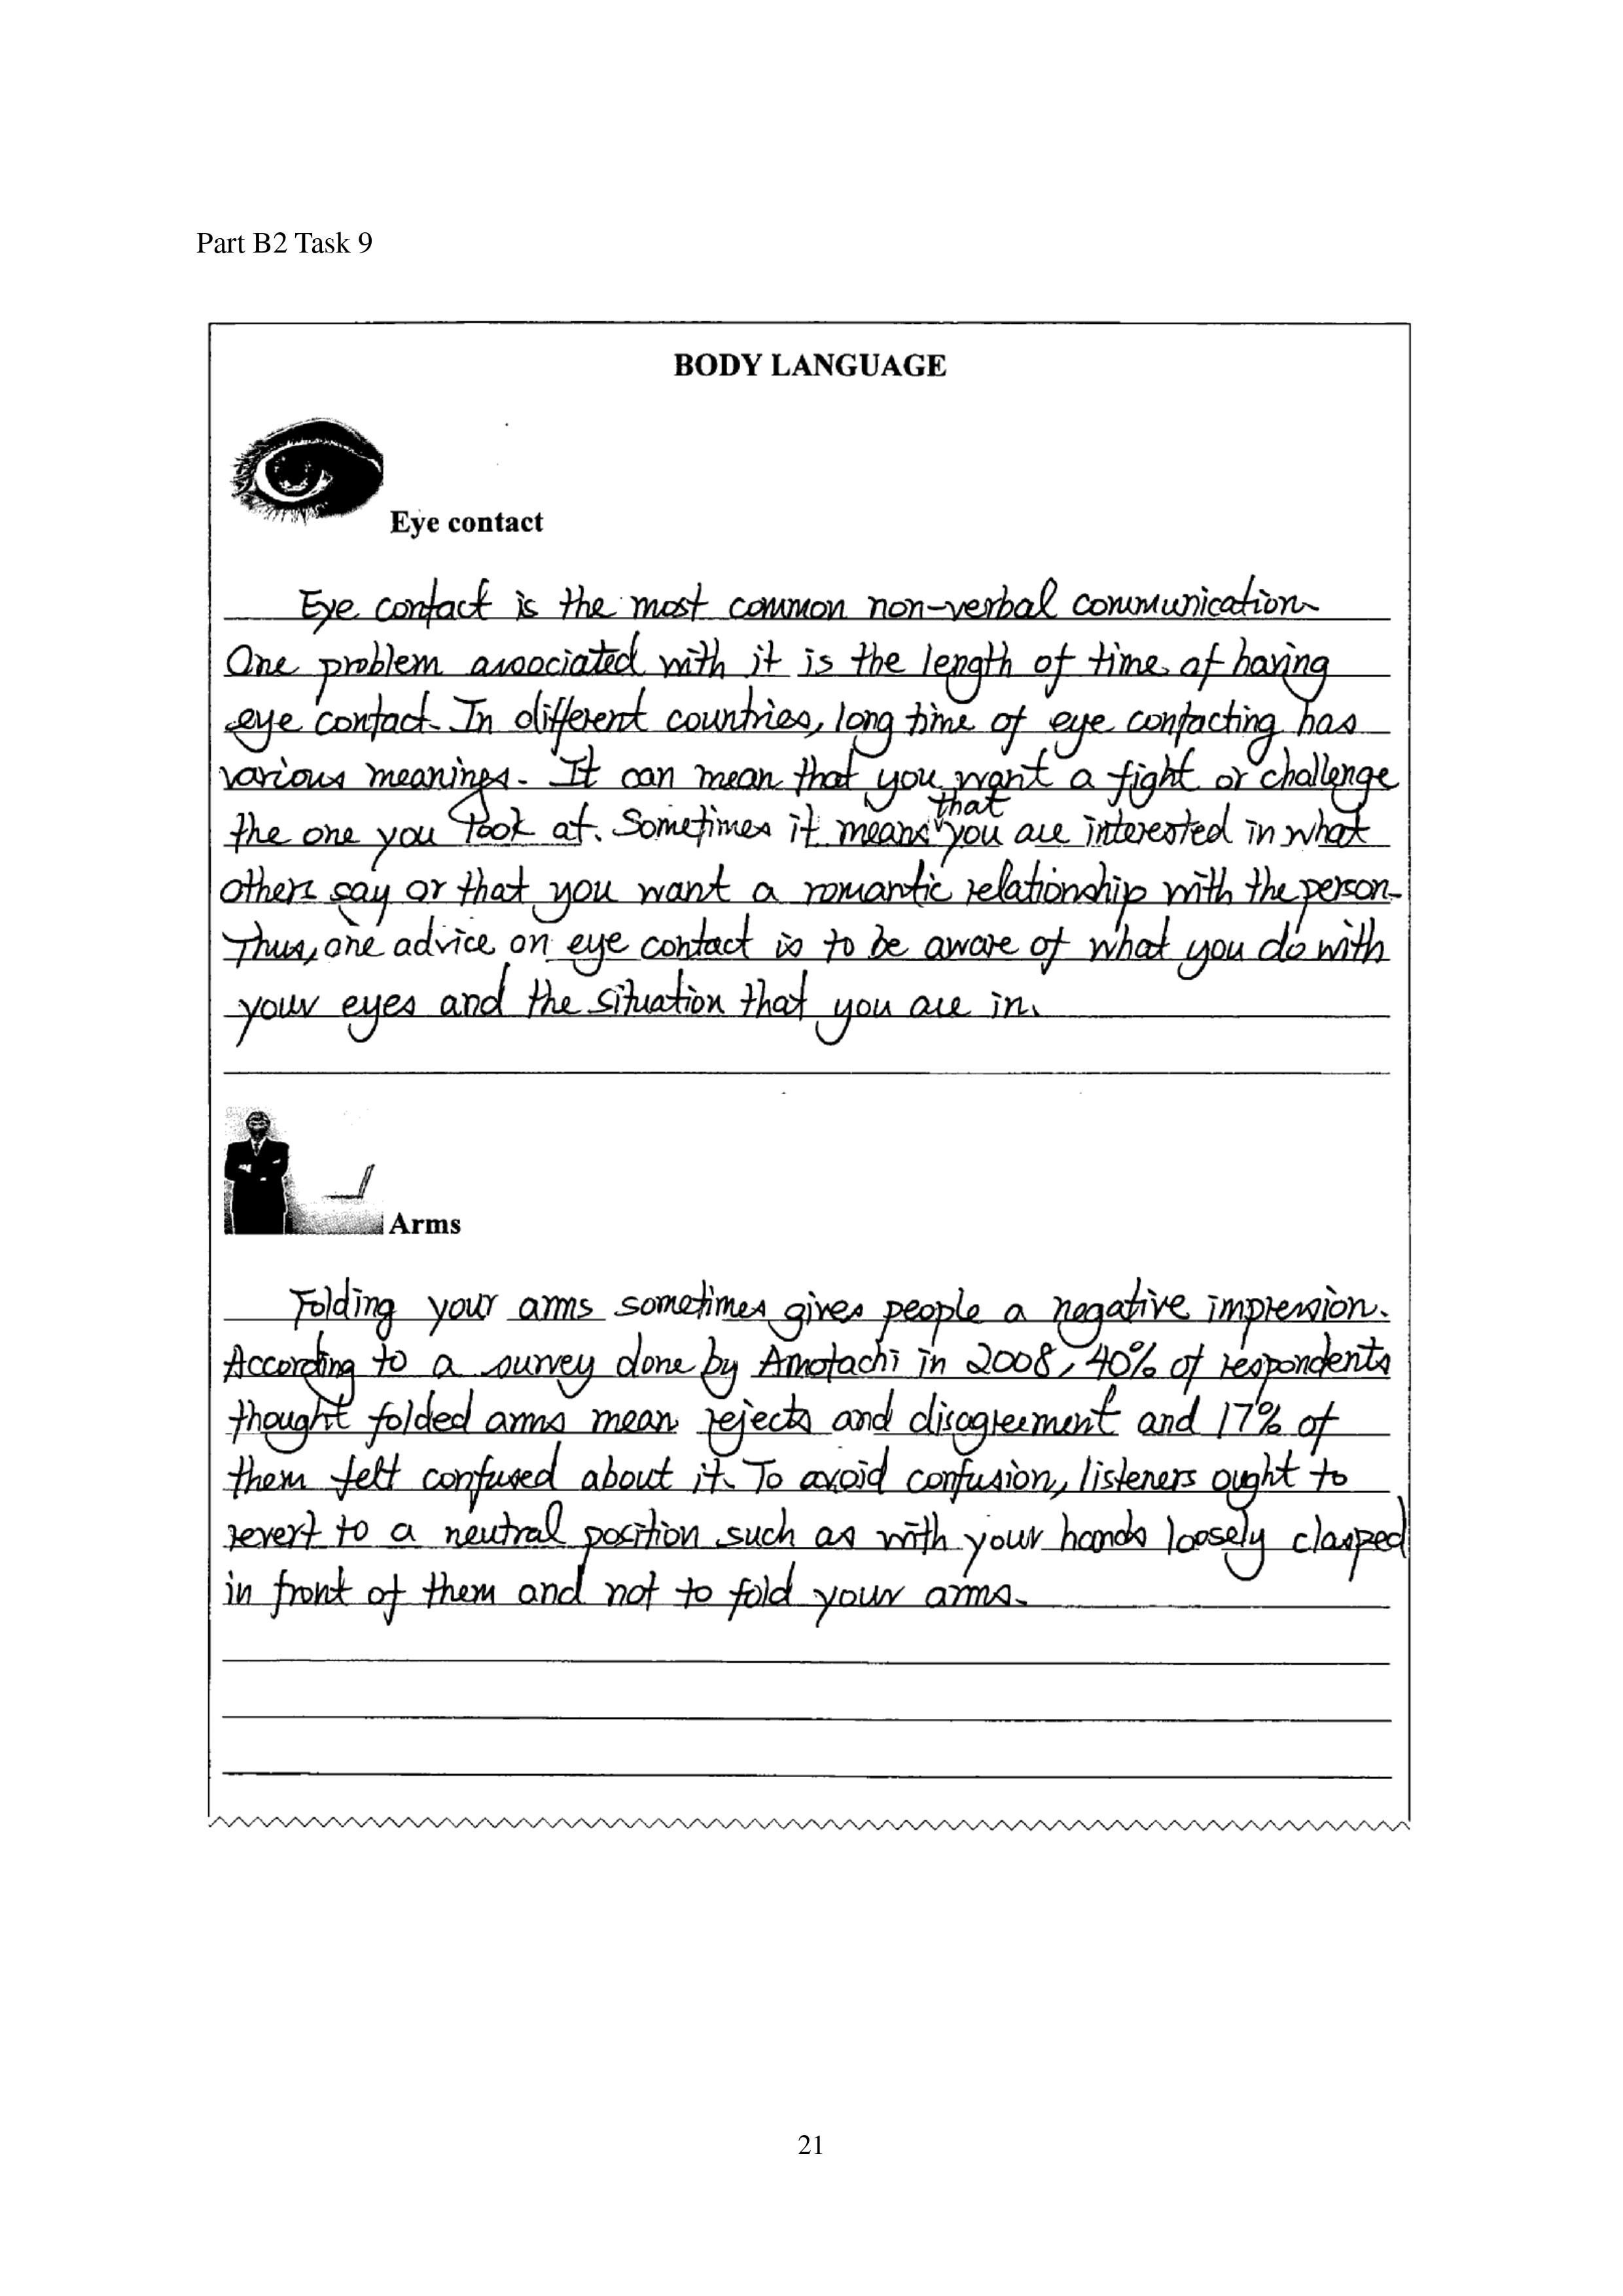 Part B2 Task 9
BODY LANGUAGE
Eye contact
Eye contact is the most common non-verbal communication.
One problem associated with it is the length of time of having
eye contact. In different countries, long time of eye contacting has
various meanings. It can mean that you want a fight or challenge
that
the one you look at. Sometimes it means you are interested in what
others say or that you want a romantic relationship with the person.
Thus, one advice on eye contact is to be aware of what you do with
your eyes and the situation that you are in.
Arms
Folding your arms sometimes gives people a negative impression.
According to a survey done by Amotachi in 2008, 40% of respondents
thought folded arms mean rejects and disagreement and 17% of
them felt confused about it. To avoid confusion, listeners ought to
revert to a neutral position such as with your hands loosely clasped
in front of them and not to fold your arms.
21